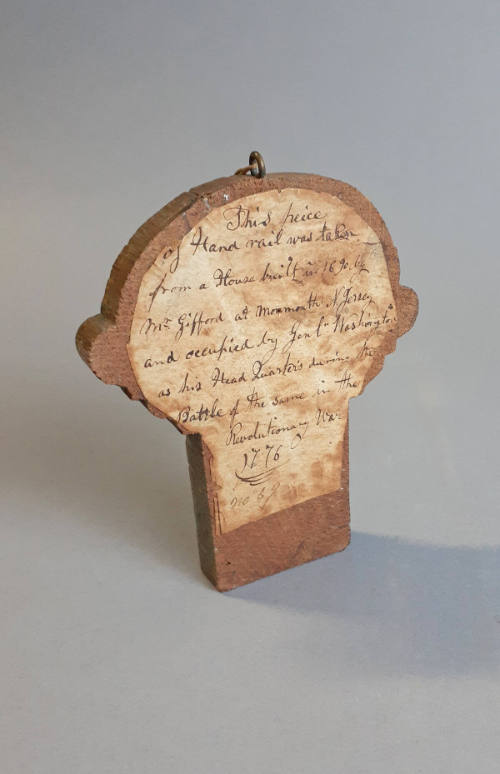 This peice
of Hand rail was taken
from a House built in 1690 by
Mr. Gifford at Monmouth N. Jersey
and occupied by Genl. Washington
as his Head Quarters during the
Battle of the same in the
Revolutionary War
1776